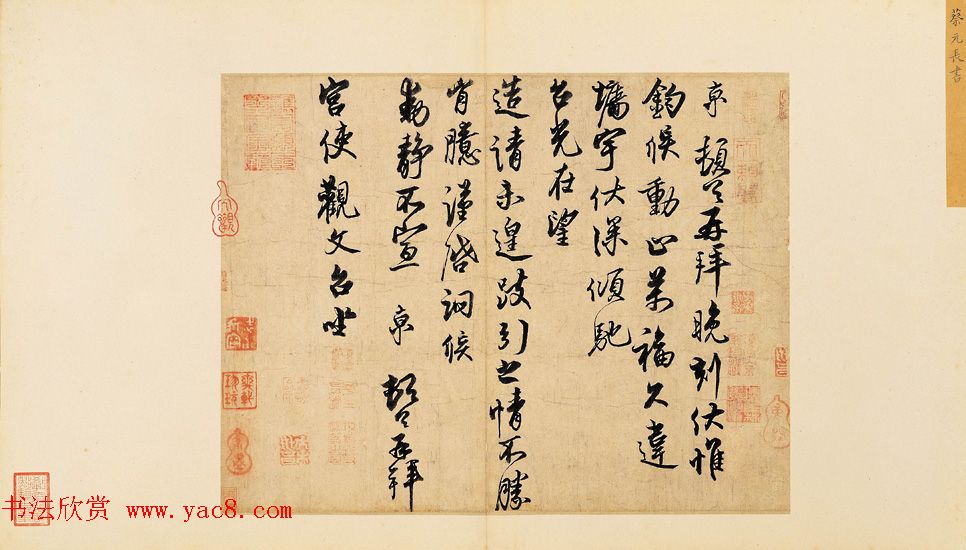 蔡元長書
京頓首再拜晚刻伏惟
鈞候動止萬福久違
墉宇伏深傾馳
台光在望
造請未遑跂引之情不勝
肖臆謹啓詗候
動靜不宣 京 頓首再拜
宮使觀文台坐
书法欣赏 www.yac8.com